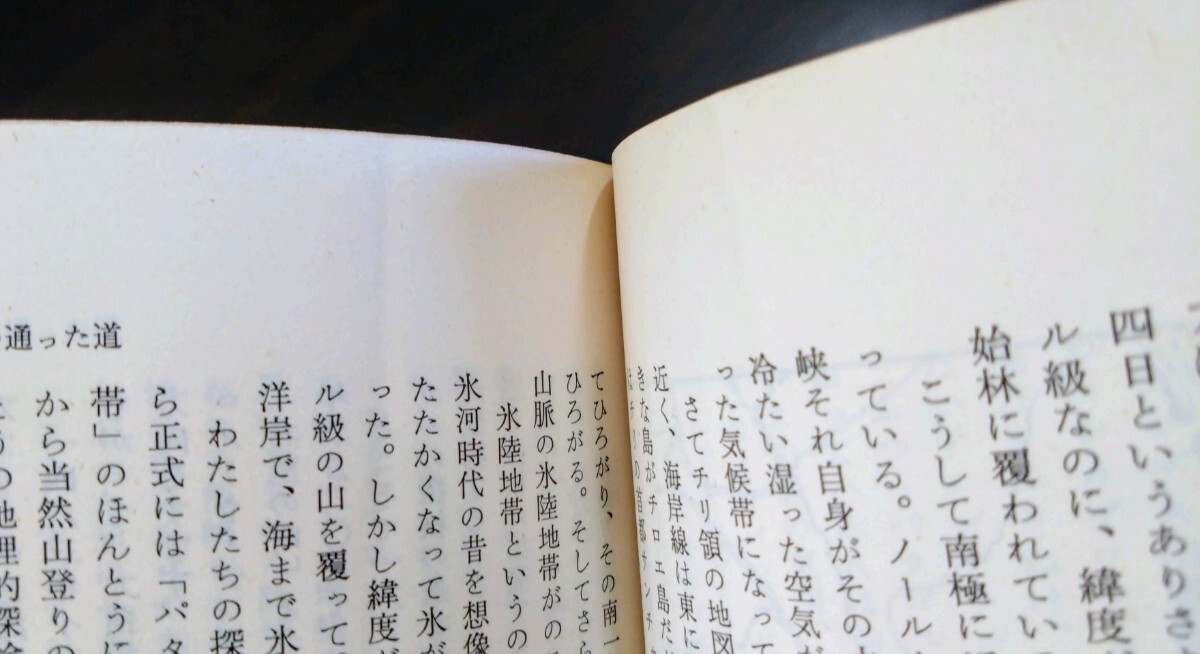 四日というありさ
ル級なのに、緯度
始林に覆われてい
こうして南極に
っている。ノール
峡それ自身がその
冷たい湿った空気が
った気候帯になって
さてチリ領の地図
近く、海岸線は東に
きな島がチロエ島だ
の首都サンチ
てひろがり、その南
ひろがる。そしてさら
山脈の氷陸地帯がの
氷陸地帯というの
氷河時代の昔を想像
たたかくなって氷が
った。しかし緯度が
ル級の山を覆って
洋岸で、海まで氷
わたしたちの探
ら正式には「パタ
帯」のほんとうに
から当然山登りの
うの地理的探検
通った道